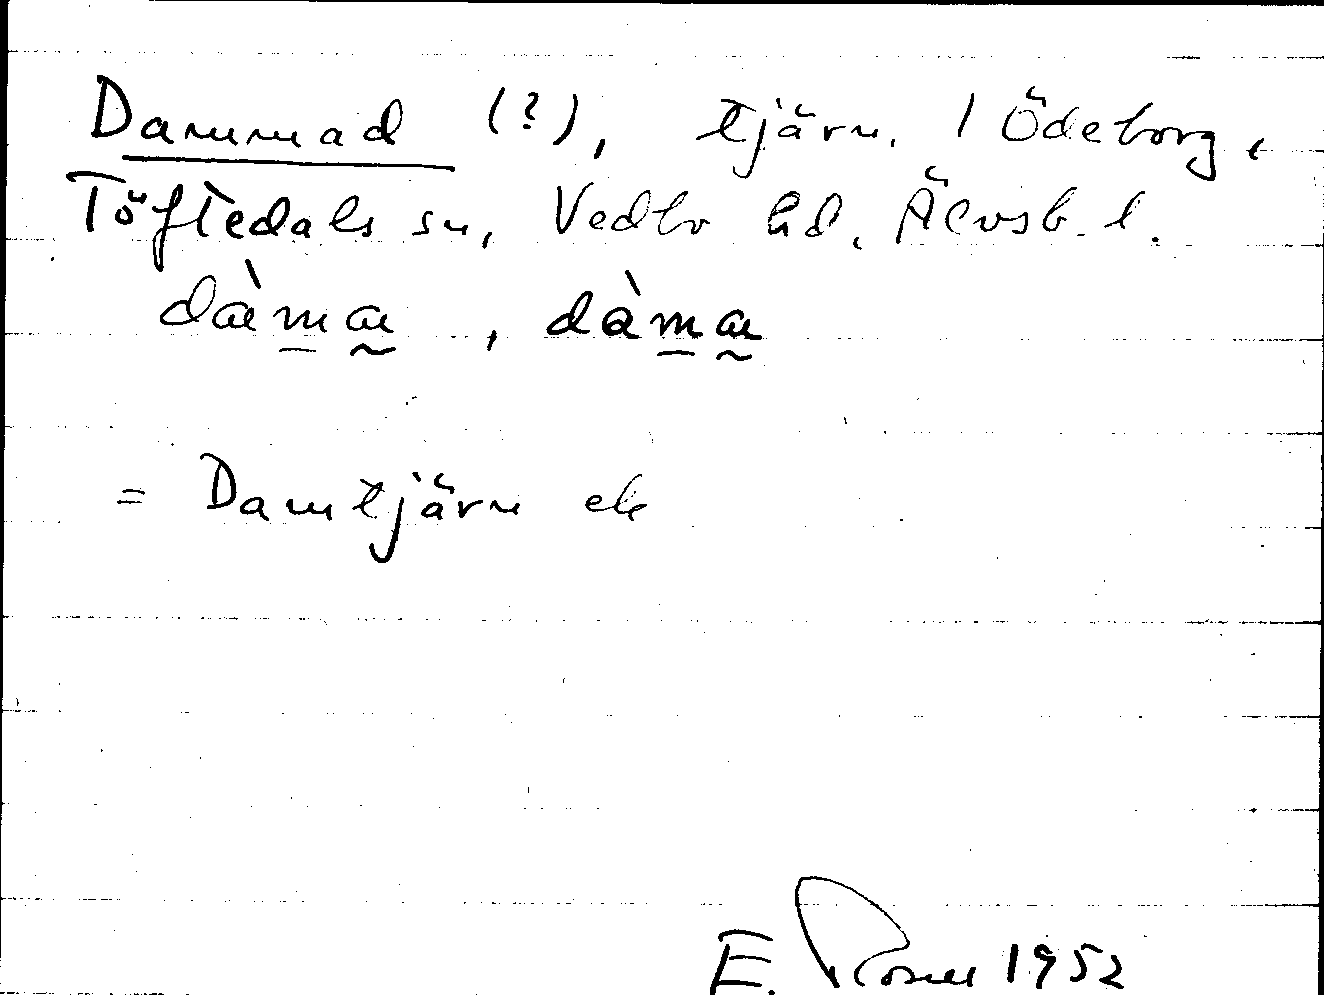 Dammad (?), tjärn, 1 Ödeborg,
Töftedals sn, Vedbo hd, Älvsb. l.
dàma, dàma
= Damtjärn ek
E. Rosell 1952